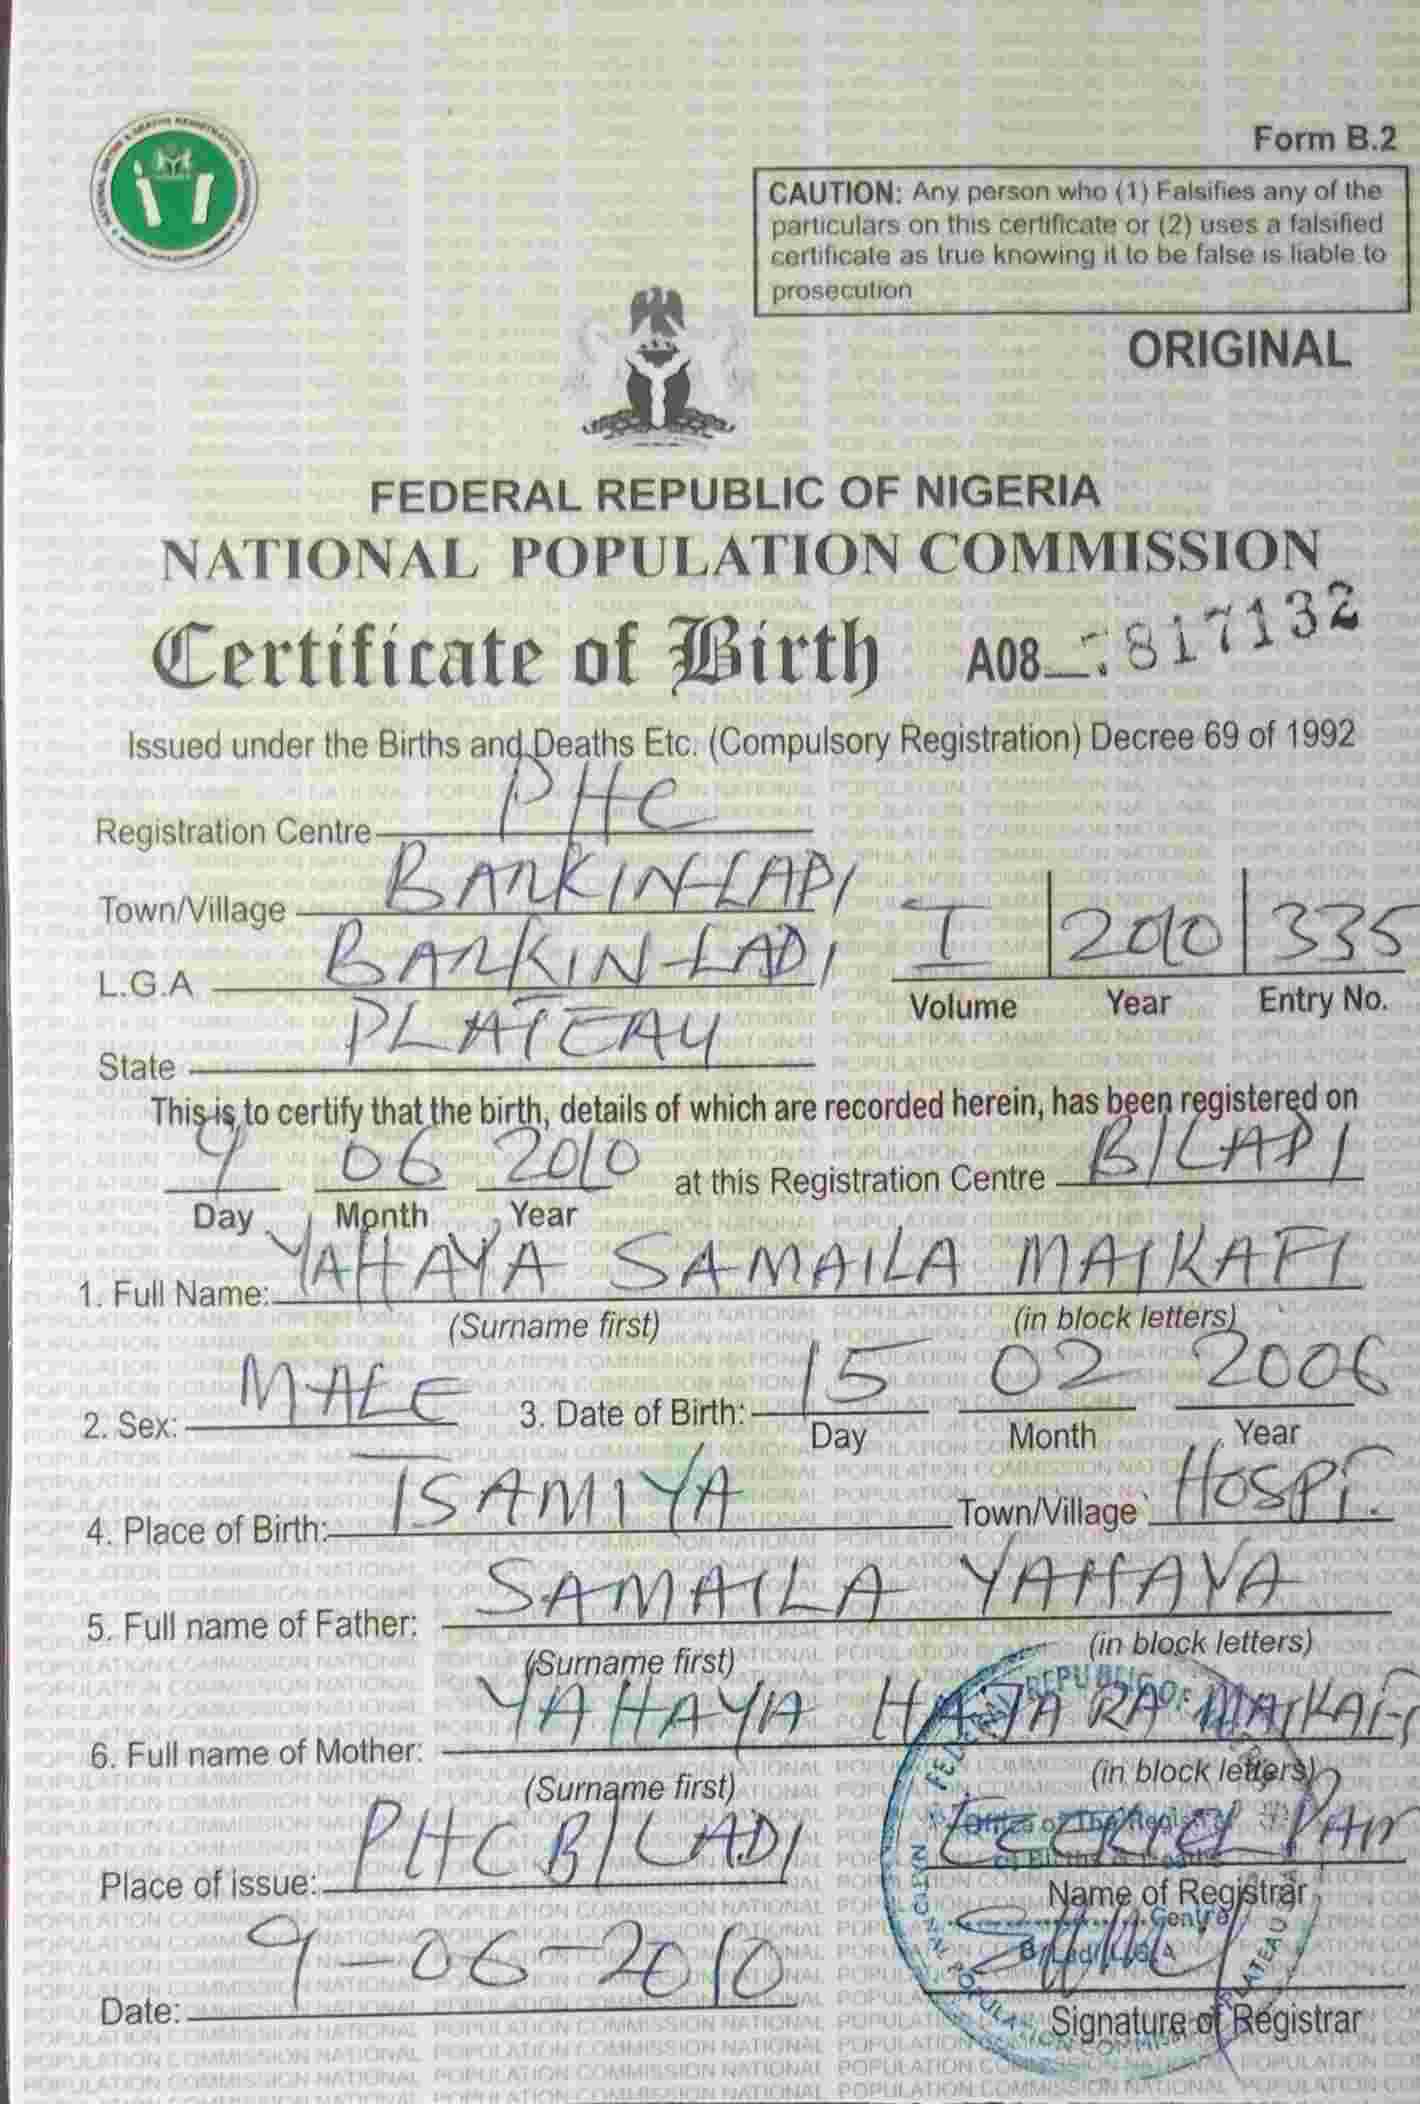 Form B.2
CAUTION: Any person who (1) Falsifies any of the
particulars on this certificate or (2) uses a falsified
certificate as true knowing it to be false is liable to
prosecution
ORIGINAL
FEDERAL REPUBLIC OF NIGERIA
NATIONAL POPULATION COMMISSION
Certificate of Birth A08 817132
Issued under the Births and Deaths Etc. (Compulsory Registration) Decree 69 of 1992
Registration Centre PHC
Town/Village BARKIN-LADI
L.G.A BARKIN-LADI
I 2010 335
Volume Year Entry No.
State PLATEAU
This is to certify that the birth, details of which are recorded herein, has been registered on
9 06 2010 at this Registration Centre B/LADI
Day Month Year
1. Full Name: YAHAYA SAMAILA MAIKAFI
(Surname first) (in block letters)
2. Sex: MALE 3. Date of Birth: 15 02 2006
Day Month Year
4. Place of Birth: TSAMIYA Town/Village HOSPI.
5. Full name of Father: SAMAILA YAHAYA
(Surname first) (in block letters)
6. Full name of Mother: YAHAYA HAJARA MAIKAFI
(Surname first) (in block letters)
Place of issue: PHC B/LADI
Name of Registrar
Date: 9-06-2010
Signature of Registrar